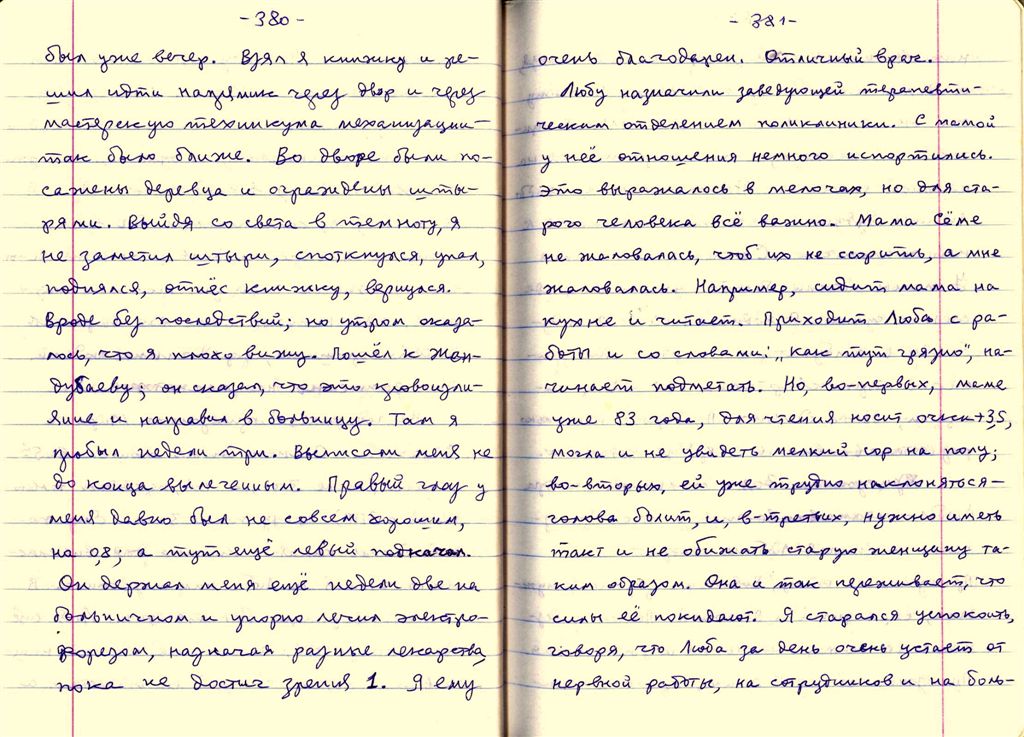 -380-
был уже вечер. Взял я книжку и ре-
шил идти напрямик через двор и через
мастерскую техникума механизации -
так было ближе. Во дворе были по-
сажены деревца и ограждены шты-
рями. Выйдя со света в темноту, я
не заметил штыри, споткнулся, упал,
поднялся, отнёс книжку, вернулся.
Вроде без последствий; но утром оказа-
лось, что я плохо вижу. Пошёл к Жан-
дубаеву; он сказал, что это кровоизли-
яние и направил в больницу. Там я
пробыл недели три. Выписали меня не
до конца вылеченным. Правый глаз у
меня давно был не совсем хорошим,
на 0,8; а тут ещё левый подкачал.
Он держал меня ещё недели две на
больничном и упорно лечил электро-
форезом, назначая разные лекарства,
пока не достиг зрения 1. Я ему
-381-
очень благодарен. Отличный врач.
Любу назначили заведующей терапевти-
ческим отделением поликлиники. С мамой
у неё отношения немного испортились.
Это выражалось в мелочах, но для ста-
рого человека всё важно. Мама Сёме
не жаловалась, чтоб их не ссорить, а мне
жаловалась. Например, сидит мама на
кухне и читает. Приходит Люба с ра-
боты и со словами: „как тут грязно", на-
чинает подметать. Но, во-первых, маме
уже 83 года, для чтения носит очки +3,5,
могла и не увидеть мелкий сор на полу;
во-вторых, ей уже трудно наклоняться -
голова болит, и, в-третьих, нужно иметь
такт и не обижать старую женщину та-
ким образом. Она и так переживает, что
силы её покидают. Я старался успокоить,
говоря, что Люба за день очень устаёт от
нервной работы, на сотрудников и на боль-